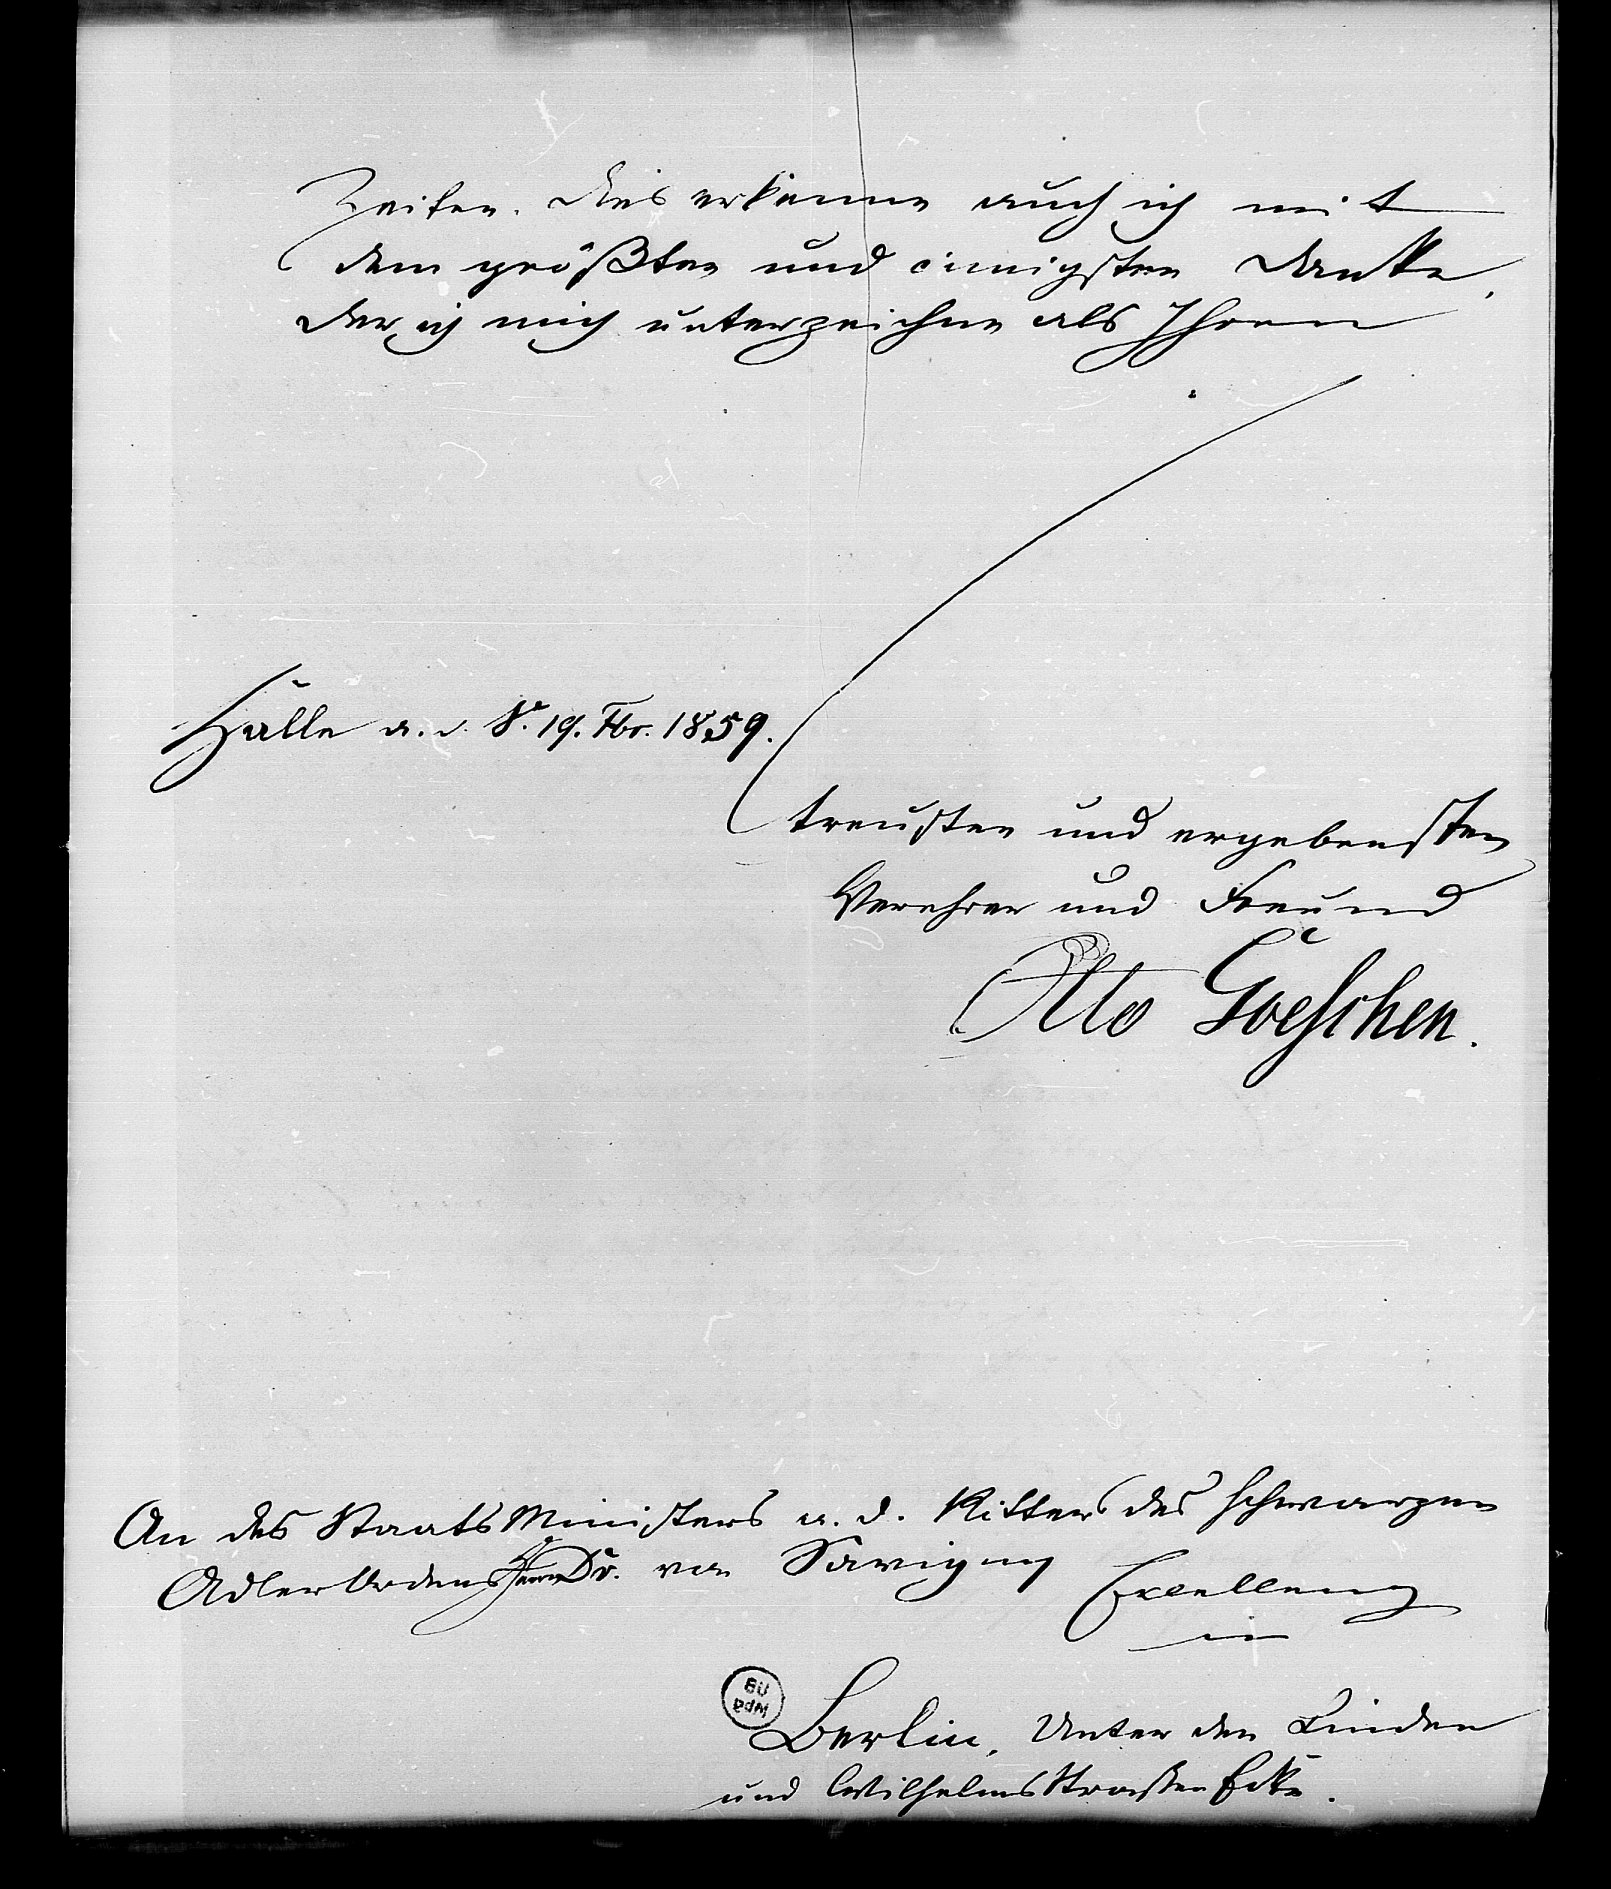 Zeiten. Dies erkenne auch ich mit
dem größten und innigsten Danke,
der ich mich unterzeichne als Ihren
Halle a. d. S. 19. Fbr. 1859.
treusten und ergebensten
Verehrer und Freund
Otto Goeschen.
An des Staats Ministers a. D. Ritters des schwarzen
Adler Ordens Herrn Dr. von Savigny Excellenz
in
Berlin, Unter den Linden
und Wilhelms Straßen Ecke.